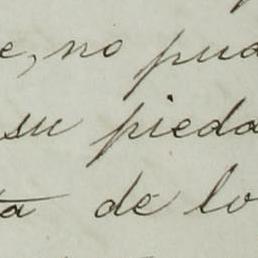 e, no pud
su pieda
ta de lo